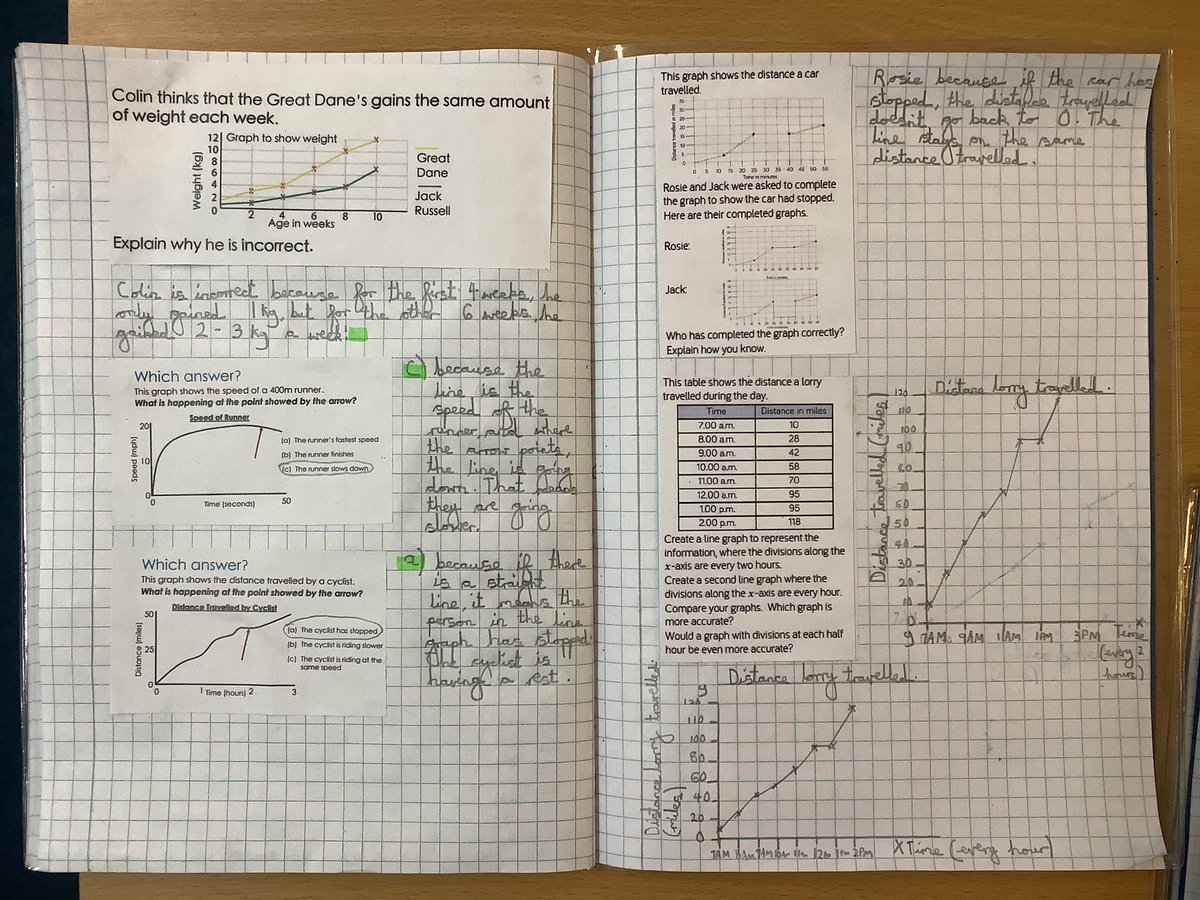 Colin thinks that the Great Dane's gains the same amount
of weight each week.
Graph to show weight
Weight (kg)
12
10
8
6
4
2
0
2 4 6 8 10
Age in weeks
Great
Dane
Jack
Russell
Explain why he is incorrect.
Colin is incorrect because for the first 4 weeks, he
only gained 1 kg, but for the other 6 weeks, he
gained 2-3 kg a week!
Which answer?
This graph shows the speed of a 400m runner.
What is happening at the point showed by the arrow?
Speed of Runner
Speed (mph)
20
10
0
0 50
Time (seconds)
(a) The runner's fastest speed
(b) The runner finishes
(c) The runner slows down
c) because the
line is the
speed of the
runner, and where
the arrow points,
the line is going
down. That means
they are going
slower.
Which answer?
This graph shows the distance travelled by a cyclist.
What is happening at the point showed by the arrow?
Distance Travelled by Cyclist
Distance (miles)
50
25
0
0 1 2 3
Time (hours)
(a) The cyclist has stopped
(b) The cyclist is riding slower
(c) The cyclist is riding at the
same speed
a) because if there
is a straight
line, it means the
person in the line
graph has stopped.
The cyclist is
having a rest.
This graph shows the distance a car
travelled.
Distance travelled in miles
35
30
25
20
15
10
5
0
0 5 10 15 20 25 30 35 40 45 50 55
Time in minutes
Rosie and Jack were asked to complete
the graph to show the car had stopped.
Here are their completed graphs.
Rosie:
Jack:
Who has completed the graph correctly?
Explain how you know.
Rosie because if the car has
stopped, the distance travelled
doesn't go back to 0. The
line stays on the same
distance travelled.
This table shows the distance a lorry
travelled during the day.
Time Distance in miles
7.00 a.m. 10
8.00 a.m. 28
9.00 a.m. 42
10.00 a.m. 58
11.00 a.m. 70
12.00 a.m. 95
1.00 p.m. 95
2.00 p.m. 118
Create a line graph to represent the
information, where the divisions along the
x-axis are every two hours.
Create a second line graph where the
divisions along the x-axis are every hour.
Compare your graphs. Which graph is
more accurate?
Would a graph with divisions at each half
hour be even more accurate?
Distane lorry travelled.
Distance travelled (miles)
120
110
100
90
80
70
60
50
40
30
20
10
0
y 7AM 9AM 11AM 1PM 3PM Time x
(every 2
hours)
Distance lorry travelled.
Distance lorry travelled
(miles)
y
120
110
100
80
60
40
20
0
7AM 8AM 9AM 10AM 11AM 12PM 1PM 2PM X Time (every hour)